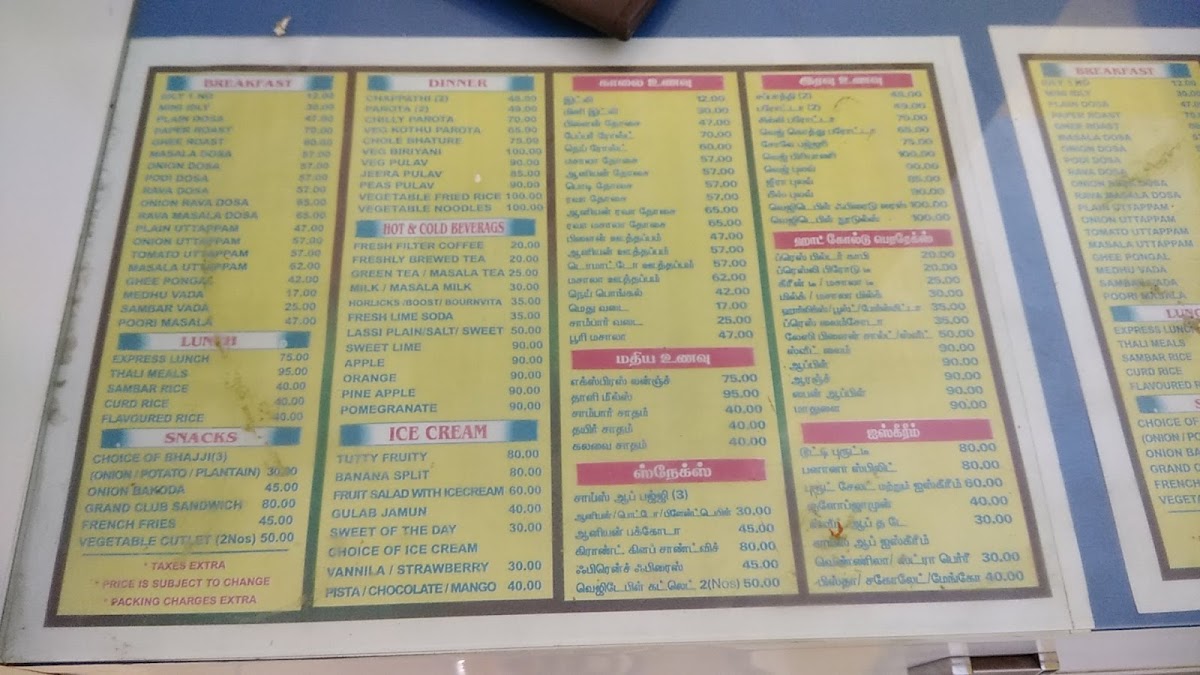 BREAKFAST
IDLY 1 NO 12.00
MINI IDLY 30.00
PLAIN DOSA 47.00
PAPER ROAST 70.00
GHEE ROAST 60.00
MASALA DOSA 57.00
ONION DOSA 57.00
PODI DOSA 57.00
RAVA DOSA 57.00
ONION RAVA DOSA 65.00
RAVA MASALA DOSA 65.00
PLAIN UTTAPPAM 47.00
ONION UTTAPPAM 57.00
TOMATO UTTAPPAM 57.00
MASALA UTTAPPAM 62.00
GHEE PONGAL 42.00
MEDHU VADA 17.00
SAMBAR VADA 25.00
POORI MASALA 47.00
LUNCH
EXPRESS LUNCH 75.00
THALI MEALS 95.00
SAMBAR RICE 40.00
CURD RICE 40.00
FLAVOURED RICE 40.00
SNACKS
CHOICE OF BHAJJI(3)
(ONION / POTATO / PLANTAIN) 30.00
ONION BAKODA 45.00
GRAND CLUB SANDWICH 80.00
FRENCH FRIES 45.00
VEGETABLE CUTLET (2Nos) 50.00
* TAXES EXTRA
* PRICE IS SUBJECT TO CHANGE
* PACKING CHARGES EXTRA
DINNER
CHAPPATHI (2) 48.00
PAROTA (2) 49.00
CHILLY PAROTA 70.00
VEG KOTHU PAROTA 65.00
CHOLE BHATURE 75.00
VEG BIRIYANI 100.00
VEG PULAV 90.00
JEERA PULAV 85.00
PEAS PULAV 90.00
VEGETABLE FRIED RICE 100.00
VEGETABLE NOODLES 100.00
HOT & COLD BEVERAGS
FRESH FILTER COFFEE 20.00
FRESHLY BREWED TEA 20.00
GREEN TEA / MASALA TEA 25.00
MILK / MASALA MILK 30.00
HORLICKS /BOOST/ BOURNVITA 35.00
FRESH LIME SODA 35.00
LASSI PLAIN/SALT/ SWEET 50.00
SWEET LIME 90.00
APPLE 90.00
ORANGE 90.00
PINE APPLE 90.00
POMEGRANATE 90.00
ICE CREAM
TUTTY FRUITY 80.00
BANANA SPLIT 80.00
FRUIT SALAD WITH ICECREAM 60.00
GULAB JAMUN 40.00
SWEET OF THE DAY 30.00
CHOICE OF ICE CREAM
VANNILA / STRAWBERRY 30.00
PISTA / CHOCOLATE / MANGO 40.00
காலை உணவு
இட்லி 12.00
மினி இட்லி 30.00
பிளைன் தோசை 47.00
பேப்பர் ரோஸ்ட் 70.00
நெய் ரோஸ்ட் 60.00
மசாலா தோசை 57.00
ஆனியன் தோசை 57.00
பொடி தோசை 57.00
ரவா தோசை 57.00
ஆனியன் ரவா தோசை 65.00
ரவா மசாலா தோசை 65.00
பிளைன் ஊத்தப்பம் 47.00
ஆனியன் ஊத்தப்பம் 57.00
டொமாட்டோ ஊத்தப்பம் 57.00
மசாலா ஊத்தப்பம் 62.00
நெய் பொங்கல் 42.00
மெது வடை 17.00
சாம்பார் வடை 25.00
பூரி மசாலா 47.00
மதிய உணவு
எக்ஸ்பிரஸ் லன்ஞ்ச் 75.00
தாளி மீல்ஸ் 95.00
சாம்பார் சாதம் 40.00
தயிர் சாதம் 40.00
கலவை சாதம் 40.00
ஸ்நேக்ஸ்
சாய்ஸ் ஆப் பஜ்ஜி (3)
ஆனியன்/பொட்டோ/பிளேன்டெயின் 30.00
ஆனியன் பக்கோடா 45.00
கிராண்ட் கிளப் சாண்ட்விச் 80.00
ஃபிரென்ச் ஃபிரைஸ் 45.00
வெஜிடேபிள் கட்லெட் 2(Nos) 50.00
இரவு உணவு
சப்பாத்தி (2) 48.00
பரோட்டா (2) 49.00
சில்லி பரோட்டா 70.00
வெஜ் கொத்து பரோட்டா 65.00
சோலே பஜ்ஜூரி 75.00
வெஜ் பிரியாணி 100.00
வெஜ் புலவ் 90.00
ஜீரா புலவ் 85.00
பீஸ் புலவ் 90.00
வெஜிடேபிள் ஃபிரைடு ரைஸ் 100.00
வெஜிடேபிள் நூடுல்ஸ் 100.00
ஹாட் கோல்டு பெவரேக்ஸ்
ப்ரெஸ் பில்டர் காபி 20.00
ப்ரெஸ்லி பிரோடு டீ 20.00
கிரீன் டீ / மசாலா டீ 25.00
மில்க் / மசாலா மில்க் 30.00
ஹார்லிக்ஸ்/பூஸ்ட்/போர்ன்விட்டா 35.00
ப்ரெஸ் லைம்சோடா 35.00
லேஸி பிளைன் சால்ட்/ஸ்வீட் 50.00
ஸ்வீட் லைம் 90.00
ஆப்பிள் 90.00
ஆரஞ்ச் 90.00
பைன் ஆப்பிள் 90.00
மாதுளை 90.00
ஐஸ்கிரீம்
டுட்டி புரூட்டி 80.00
பனானா ஸ்பிலிட் 80.00
புரூட் சேலட் மற்றும் ஐஸ்கிரீம் 60.00
குளோப்ஜாமுன் 40.00
ஸ்வீட் ஆப் த டே 30.00
சாய்ஸ் ஆப் ஐஸ்கிரீம்
வெண்ணிலா/ ஸ்ட்ரா பெர்ரி 30.00
பிஸ்தா/ சாகோலேட்/மேங்கோ 40.00
BREAKFAST
IDLY 1 NO 12.00
MINI IDLY 30.00
PLAIN DOSA
PAPER ROAST
GHEE ROAST
MASALA DOSA
ONION DOSA
PODI DOSA
RAVA DOSA
ONION RAVA
RAVA MASALA DOSA
PLAIN UTTAPPAM
ONION UTTAPPAM
TOMATO UTTAPPAM
MASALA UTTAPPAM
GHEE PONGAL
MEDHU VADA
SAMBAR VADA
POORI MASALA
EXPRESS LUNCH
THALI MEALS
SAMBAR RICE
CURD RICE
FLAVOURED R
CHOICE OF
(ONION / PO
ONION B
GRAND C
FRENCH
VEGETA